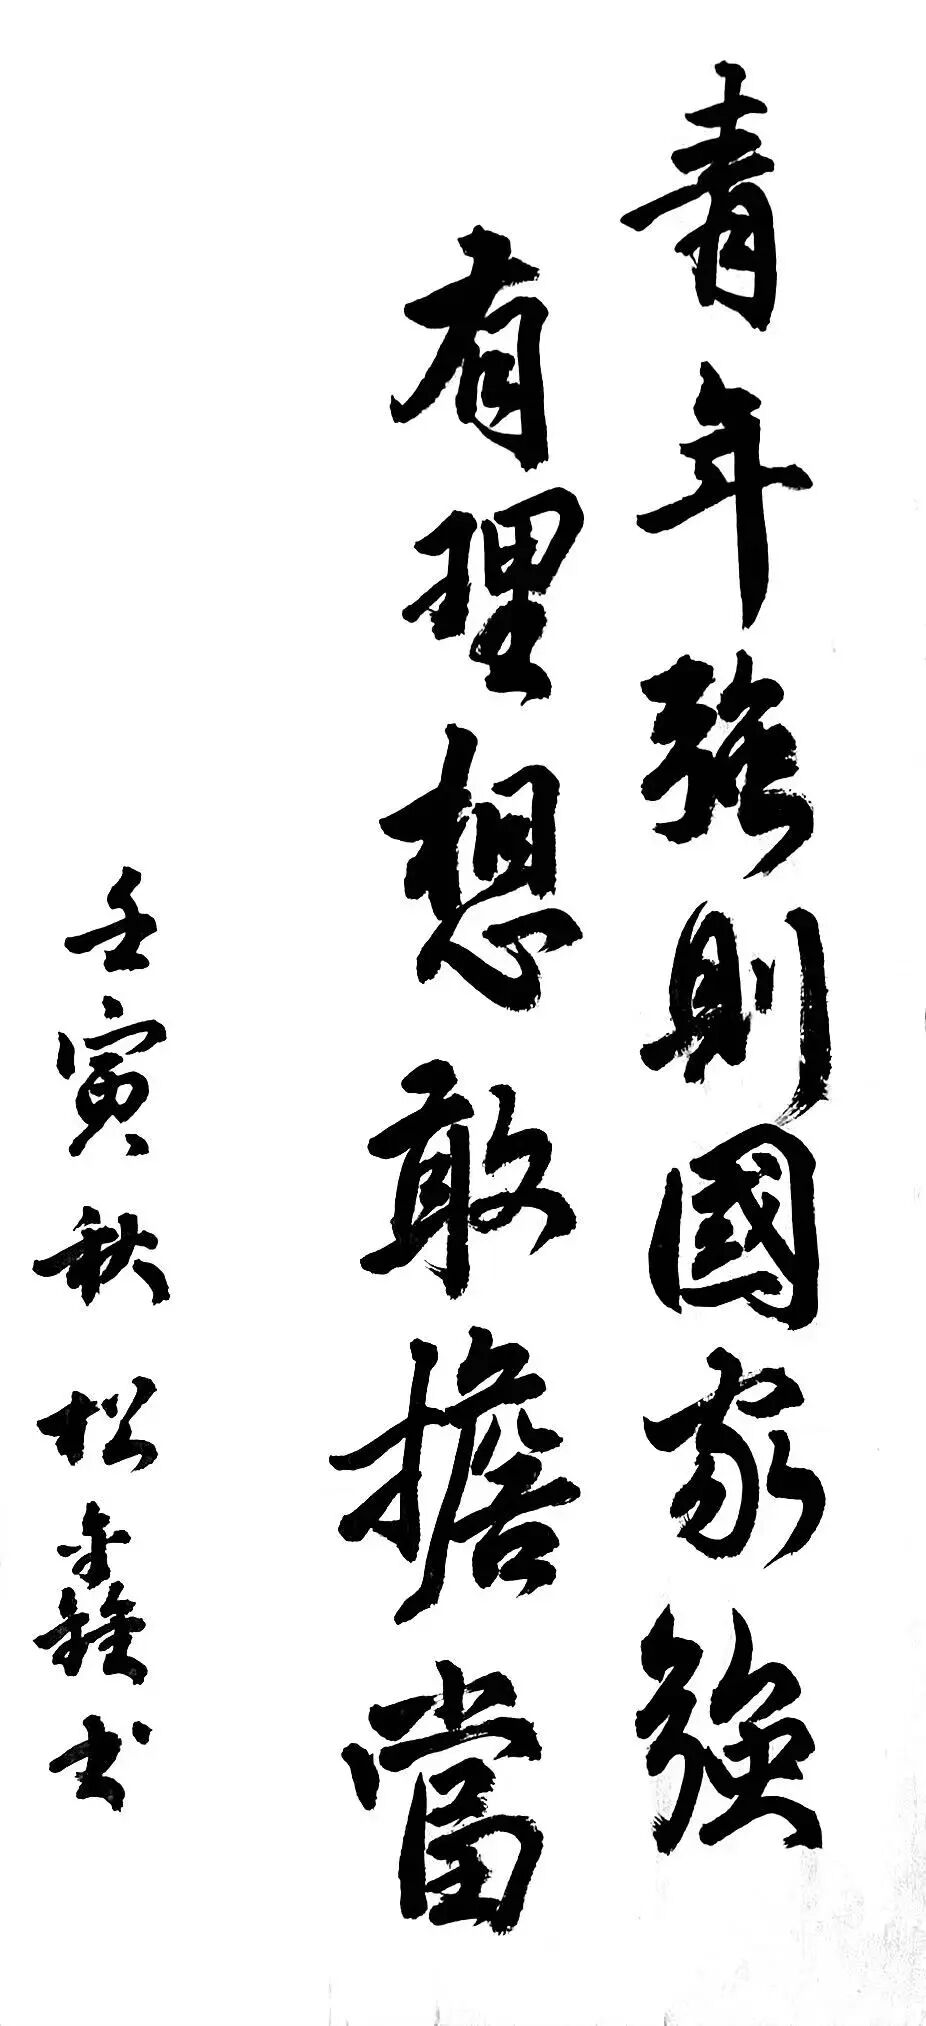 青年強則國家強
有理想敢擔當
壬寅秋松鑫书